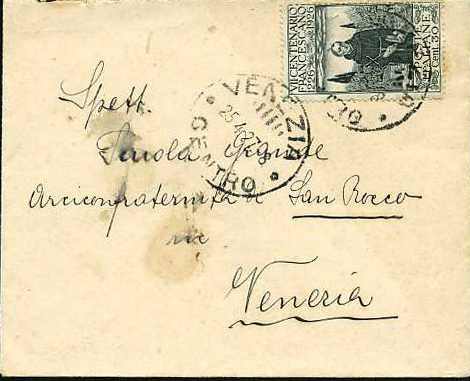 VII CENTENARIO
FRANCESCANO
1226 1926
POSTE
ITALIANE
Cent. 30
VENEZIA
CENTRO
Spett.
Scuola Grande
Arciconfraternita di San Rocco
in
Venezia